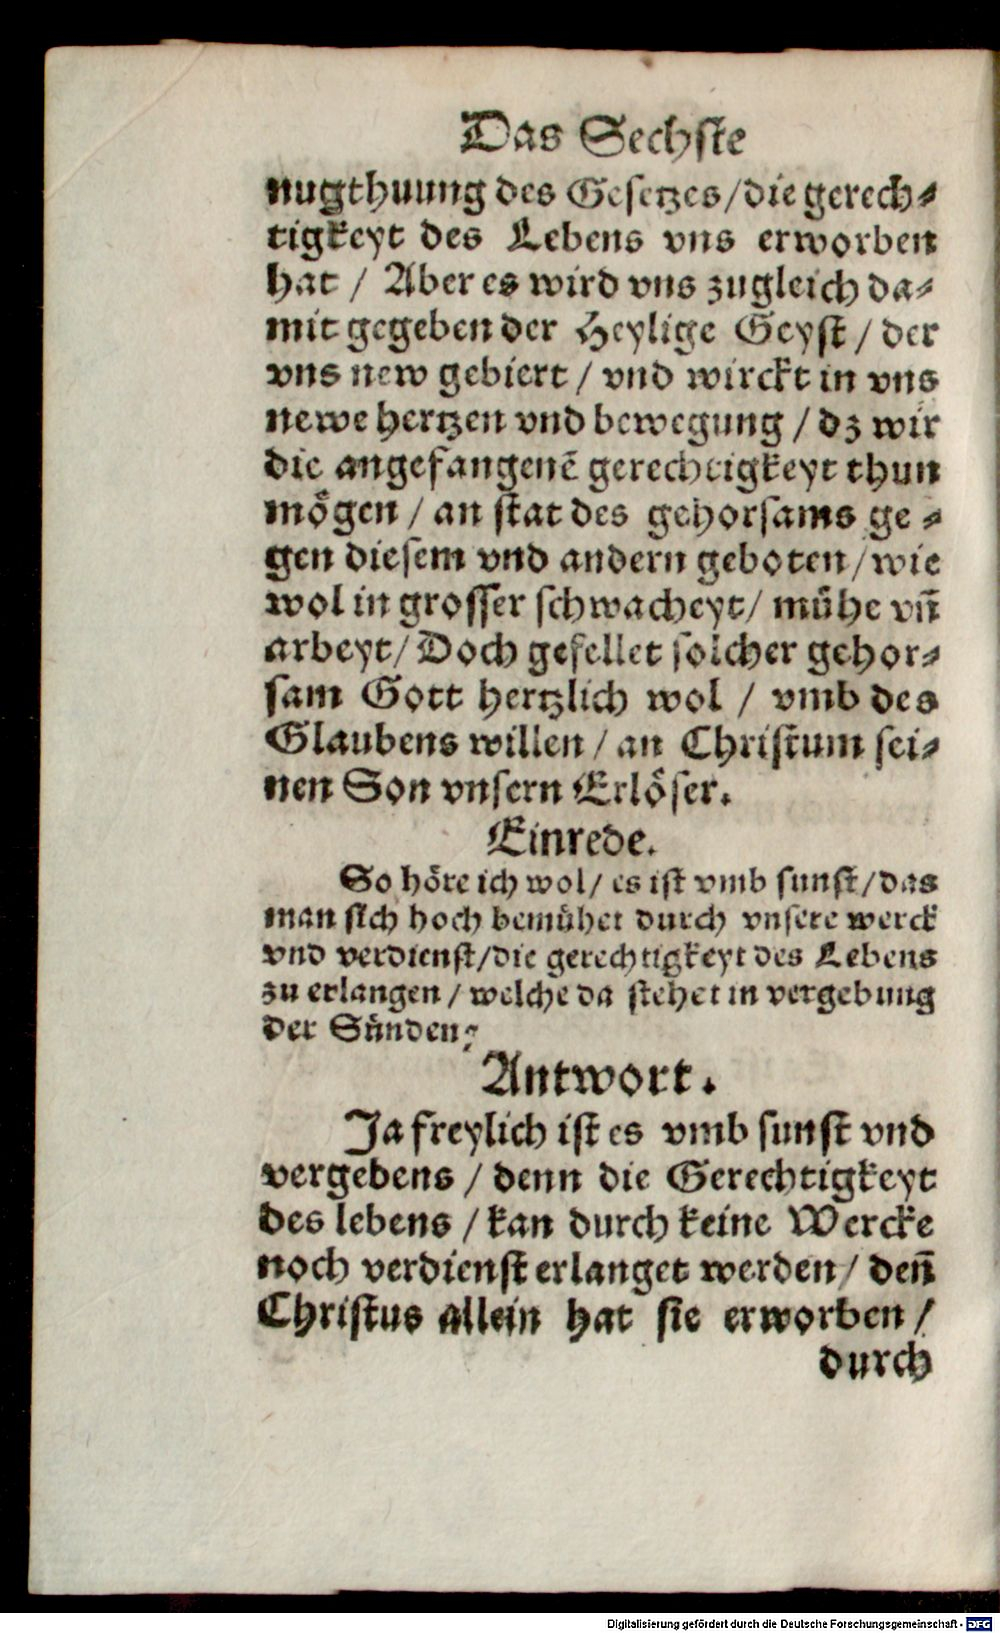 Das Sechste
nugthuung des Gesetzes/die gerech⸗
tigkeyt des Lebens vns erworben
hat / Aber es wird vns zugleich da⸗
mit gegeben der Heylige Geyst / der
vns new gebiert / vnd wirckt in vns
newe hertzen vnd bewegung / dz wir
die angefangenē gerechtigkeyt thun
moͤgen / an stat des gehorsams ge ⸗
gen diesem vnd andern geboten/wie
wol in grosser schwacheyt/ muͤhe vn̄
arbeyt/ Doch gefellet solcher gehor⸗
sam Gott hertzlich wol / vmb des
Glaubens willen / an Christum sei⸗
nen Son vnsern Erloͤser.
Einrede.
So hoͤre ich wol/ es ist vmb sunst/das
man sich hoch bemuͤhet durch vnsere werck
vnd verdienst/die gerechtigkeyt des Lebens
zu erlangen / welche da stehet in vergebung
der Suͤnden?
Antwort.
Ja freylich ist es vmb sunst vnd
vergebens / denn die Gerechtigkeyt
des lebens / kan durch keine Wercke
noch verdienst erlanget werden/ den̄
Christus allein hat sie erworben /
durch
Digitalisierung gefördert durch die Deutsche Forschungsgemeinschaft - DFG